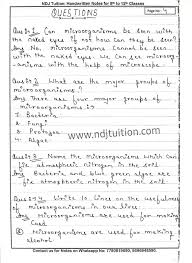 NDJ Tuition: Handwritten Notes for 6th to 12th Classes
QUESTIONS
Que:- 1 Can microorganisms be seen with
the naked eyes if not how can they be seen?
Ans No, microorganisms cannot be seen
with the naked eyes. We can see microorg-
anisms with the help of microscope.
Que:- 2 What are the major groups of
microorganisms?
Ans There are four major groups of
microorganisms:-
1) Bacteria
2) Fungi
3) Protozoa
4) Algae
www.ndjtuition.com
Que:- 3 Name the microorganisms which can
fix atmospheric nitrogen in the soil.
Ans Bacteria and blue green algae can
fix atmospheric nitrogen in the soil.
Que:- 4 Write 10 lines on the usefulness
of microorganisms in our lives:
Ans Microorganisms are used for making
Curd.
Microorganisms are used for making
alcohol.
Contact us for Notes on Whatsapp No: